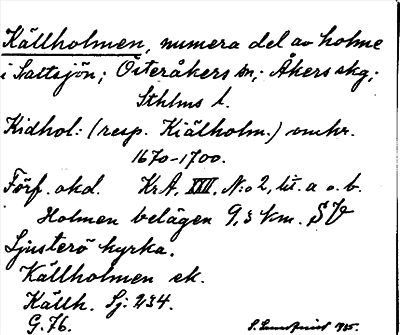 Källholmen, numera del av holme
i Saltsjön; Österåkers sn; Åkers skg;
Sthlms l.
Kidhol: (resp. Kiälholm.) omkr.
1670-1700.
Förf. okd. KrA. XXII. N:o 2, lit. a o. b.
Holmen belägen 9,3 km. SV
Ljusterö kyrka.
Källholmen ek.
Källh. Sj: 234.
G. 76.